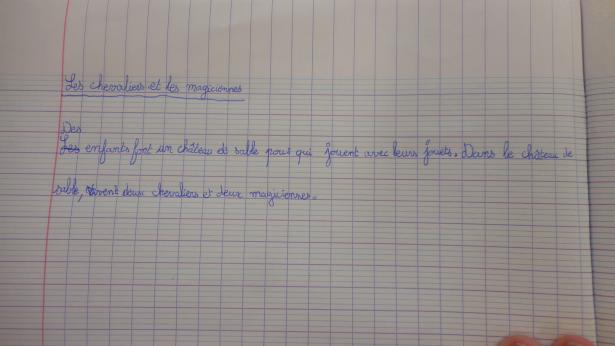 Les chevaliers et les magiciennes
Des
Les enfants font un château de sable pour qui jouent avec leurs jouets. Dans le château de
sable, vivent deux chevaliers et deux magiciennes.